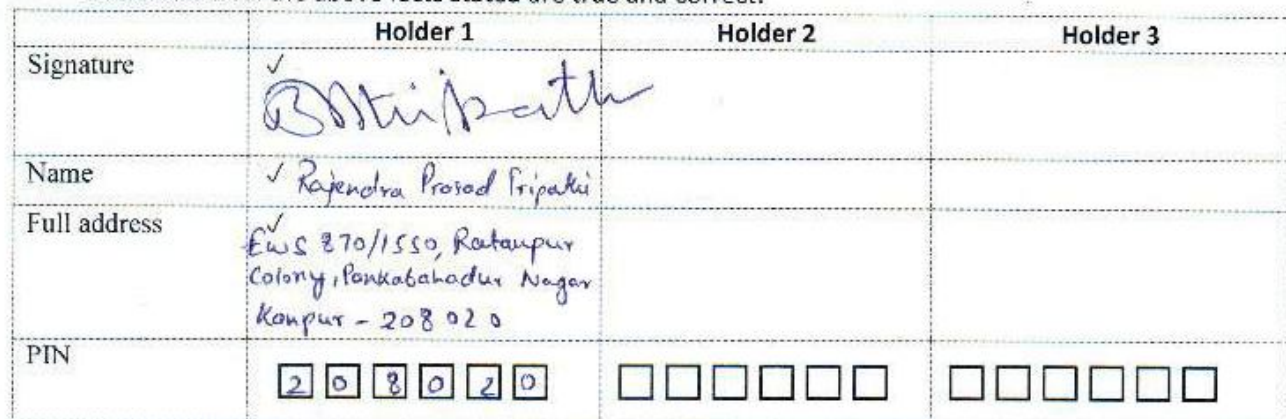 the above facts stated are true and correct.
Holder 1 Holder 2 Holder 3
Signature ✓
Name ✓ Rajendra Prasad Tripathi
Full address ✓
EWS 870/1550, Ratanpur
Colony, Pankabahadur Nagar
Kanpur - 208 020
PIN 2 0 8 0 2 0